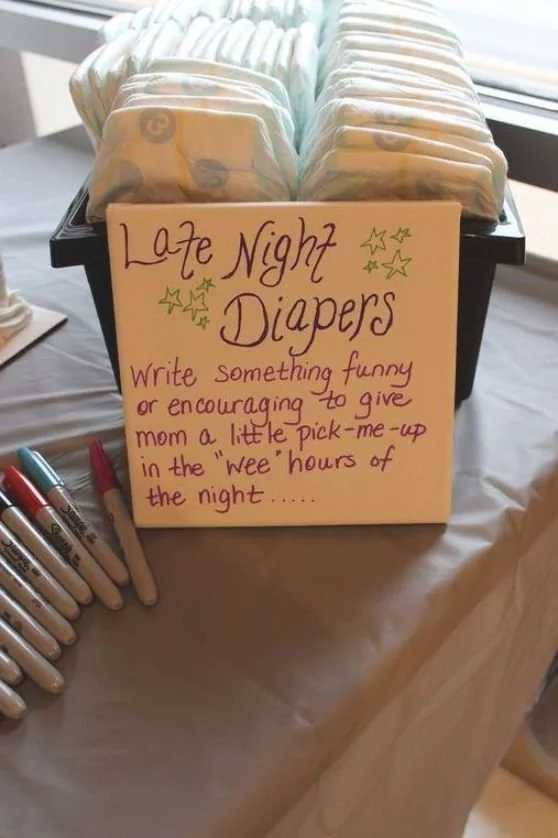 Late Night
Diapers
Write something funny
or encouraging to give
mom a little pick-me-up
in the "wee" hours of
the night.....
Sharpie
Sharpie